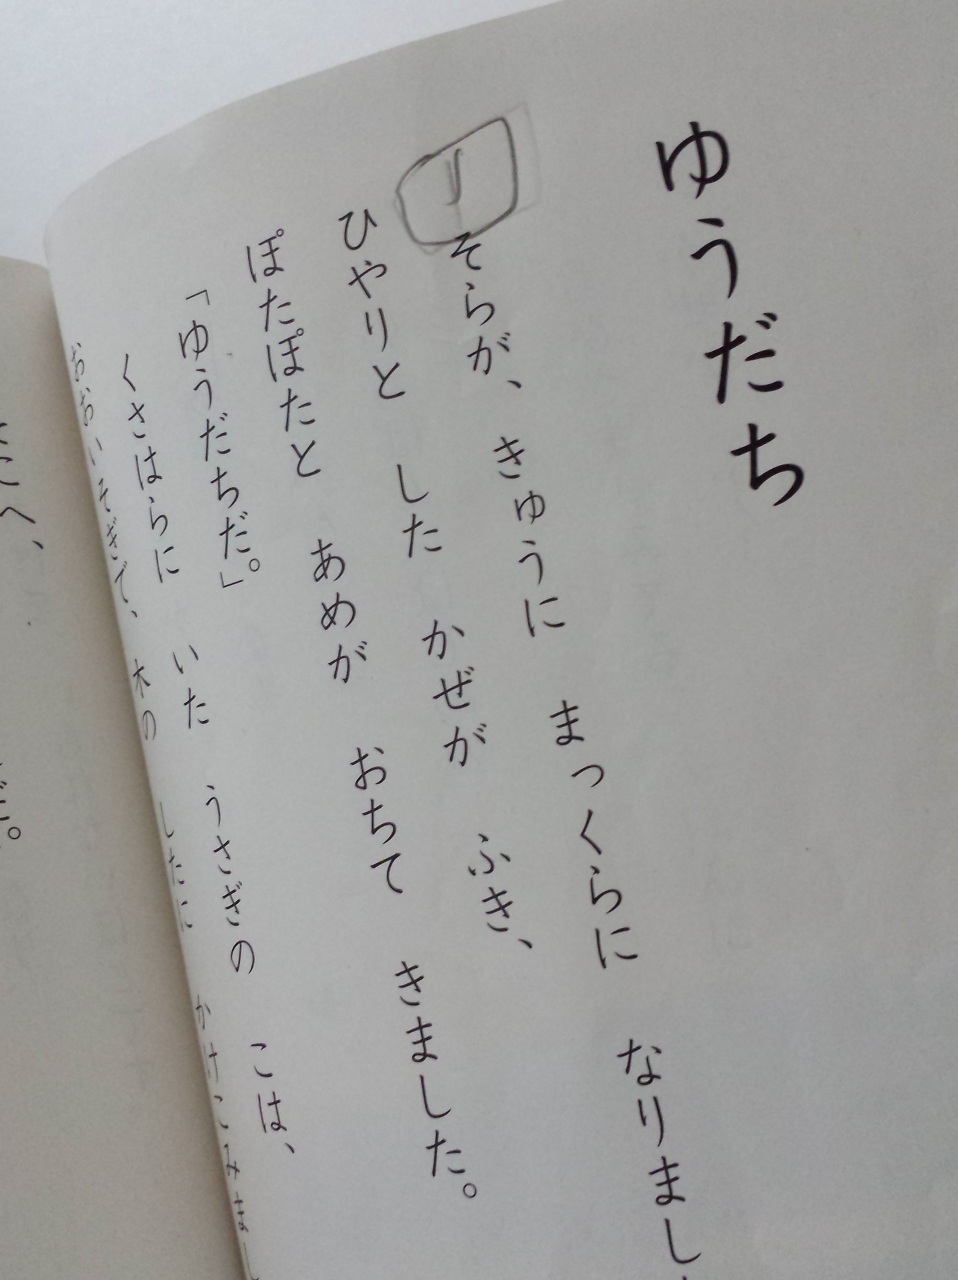 ゆうだち
そらが、 きゅうに まっくらに なりまし
ひやりと した かぜが ふき、
ぽたぽたと あめが おちて きました。
「ゆうだちだ。」
くさはらに いた うさぎの こは、
おおいそぎで、 木の したに かけこみまし